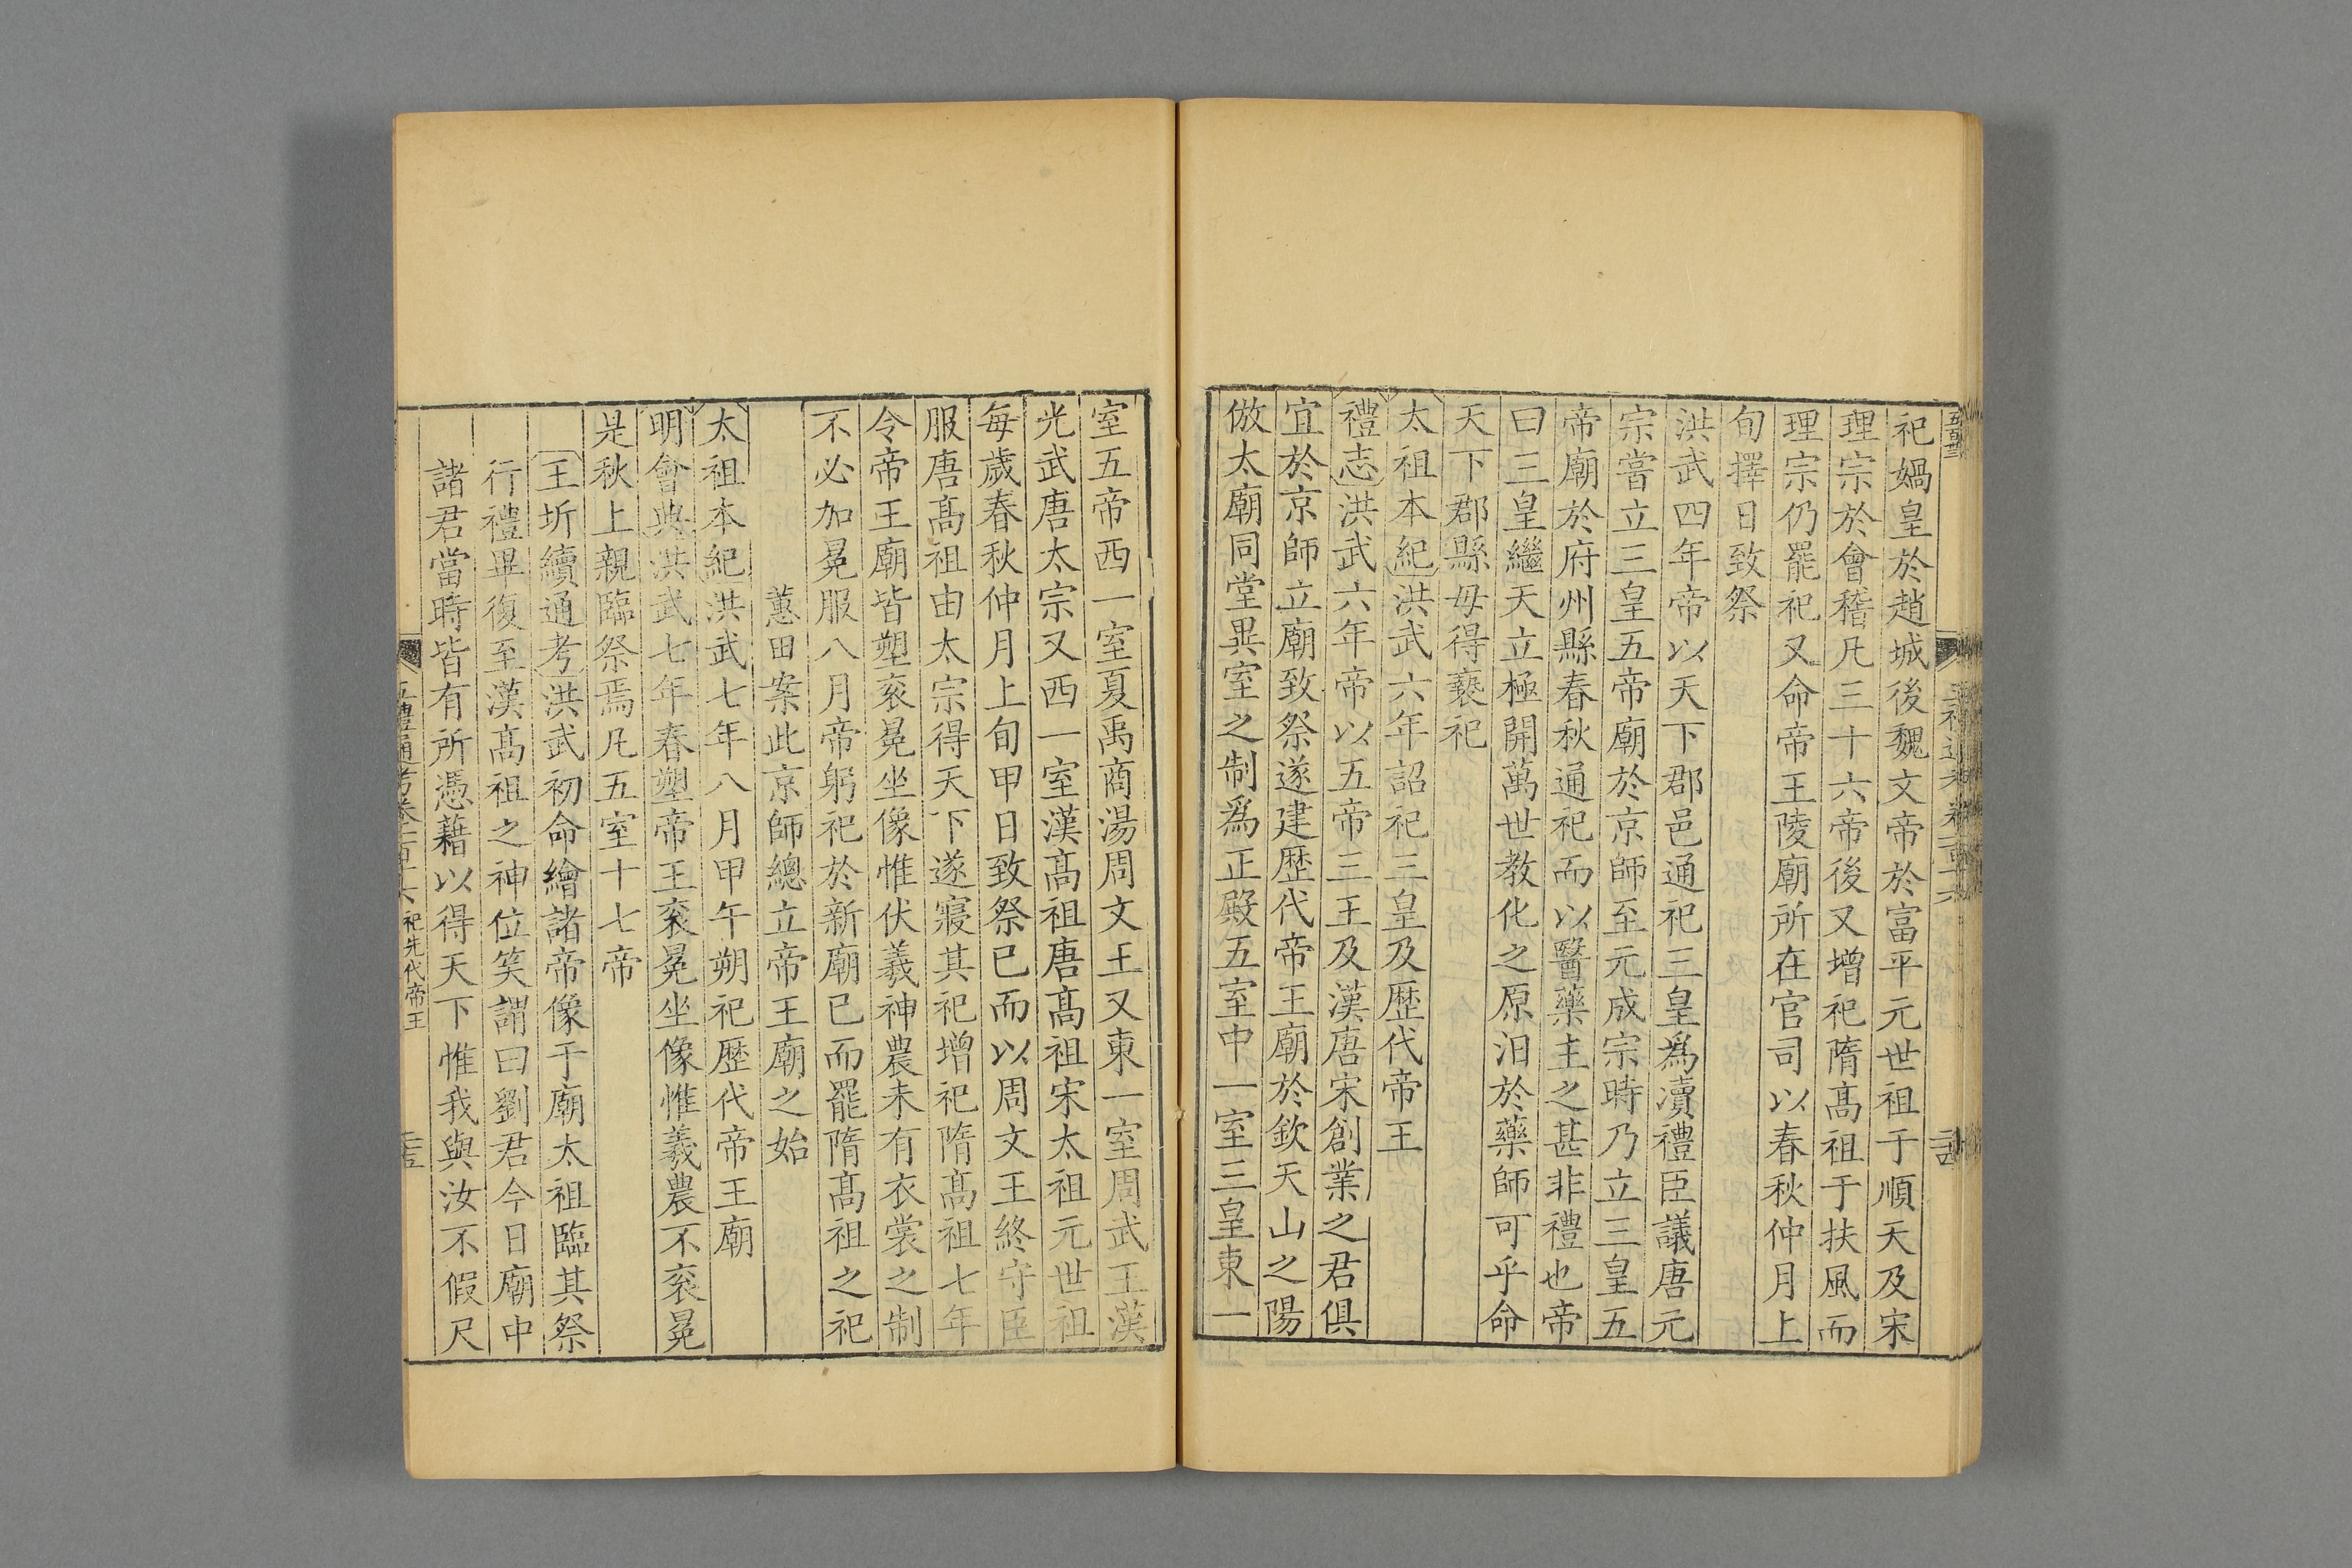 祀媧皇於趙城後魏文帝於富平元世祖于順天及宋
理宗於會稽凡三十六帝後又增祀隋髙祖于扶風而
理宗仍罷祀又命帝王陵廟所在官司以春秋仲月上
旬擇日致祭
洪武四年帝以天下郡邑通祀三皇爲瀆禮臣議唐元
宗嘗立三皇五帝廟於京師至元成宗時乃立三皇五
帝廟於府州縣春秋通祀而以醫藥主之甚非禮也帝
曰三皇繼天立極開萬世教化之原汨於藥師可乎命
天下郡縣毋得褻祀
太祖本紀洪武六年詔祀三皇及歴代帝王
禮志洪武六年帝以五帝三王及漢唐宋創業之君俱
宜於京師立廟致祭遂建歴代帝王廟於欽天山之陽
倣太廟同堂異室之制爲正殿五室中一室三皇東一
室五帝西一室夏禹商湯周文王又東一室周武王漢
光武唐太宗又西一室漢髙祖唐髙祖宋太祖元世祖
每歲春秋仲月上旬甲日致祭已而以周文王終守臣
服唐髙祖由太宗得天下遂寢其祀增祀隋髙祖七年
令帝王廟皆塑衮冕坐像惟伏羲神農未有衣裳之制
不必加冕服八月帝躬祀於新廟已而罷隋髙祖之祀
蕙田案此京師總立帝王廟之始
太祖本紀洪武七年八月甲午朔祀歴代帝王廟
明會典洪武七年春塑帝王衮冕坐像惟羲農不衮冕
是秋上親臨祭焉凡五室十七帝
王圻續通考洪武初命繪諸帝像于廟太祖臨其祭
行禮畢復至漢髙祖之神位笑謂曰劉君今日廟中
諸君當時皆有所憑藉以得天下惟我與汝不假尺
五禮通考卷一百十六 祀先代帝王